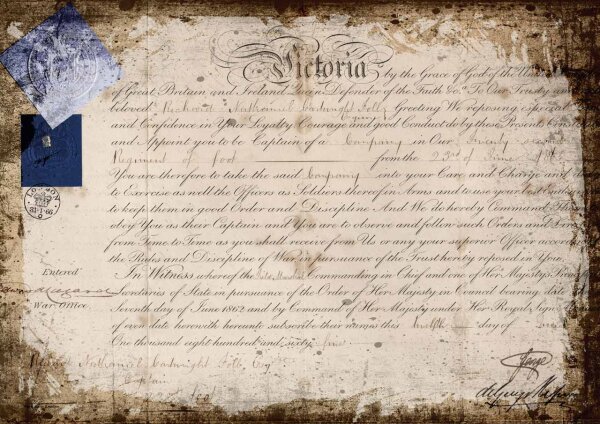 Victoria by the Grace of God of the
of Great Britain and Ireland Queen Defender of the Faith &c. To Our Trusty and
beloved Richard Nathaniel Cartwright Foll Greeting We reposing especial
and Confidence in Your Loyalty Courage and good Conduct do by these Presents
and Appoint you to be Captain of a Company in Our Twenty
Regiment of foot from the 23rd of June
You are therefore to take the said Company into your Care and Charge and
to Exercise as well the Officers as Soldiers thereof in Arms and to use your best
to keep them in good Order and Discipline And We do hereby Command
obey You as their Captain and You are to observe and follow such Orders and
from Time to Time as you shall receive from Us or any your superior Officer
the Rules and Discipline of War in pursuance of the Trust hereby reposed in You.
In Witness whereof the Field Marshal Commanding in Chief and one of Her Majesty's
Secretaries of State in pursuance of the Order of Her Majesty in Council bearing date
Second day of June 1862 and by Command of Her Majesty under Her Royal Sign
of even date herewith hereunto subscribe their names this twelfth day of
One thousand eight hundred and sixty five
LONDON
Entered
War Office.
Nathaniel Cartwright Foll, Esq
Captain
foot